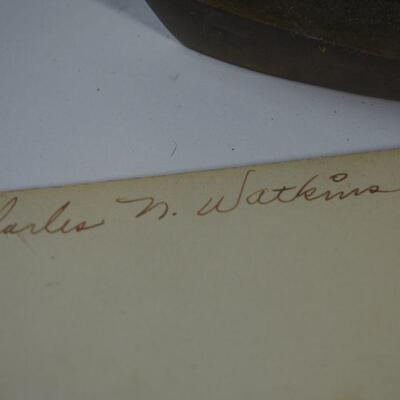 harles N. Watkins